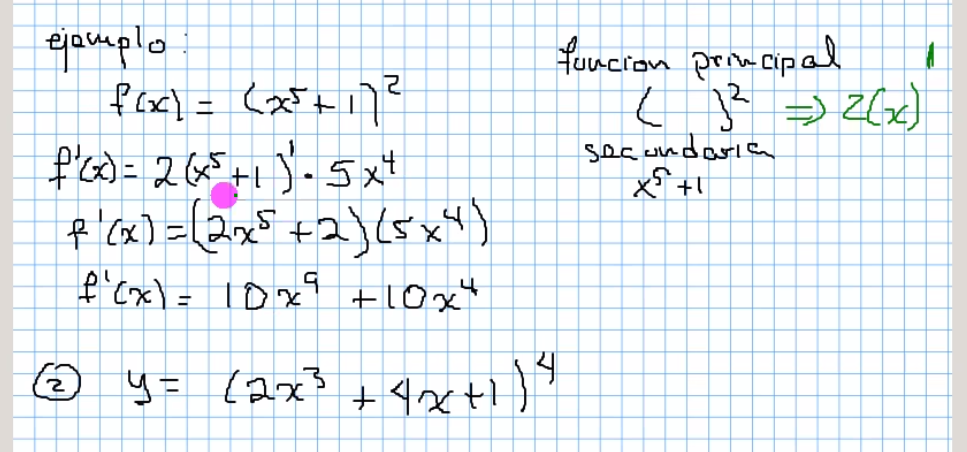 ejemplo:
f(x) = (x⁵ + 1)²
f'(x) = 2(x⁵ + 1)¹ · 5x⁴
f'(x) = (2x⁵ + 2)(5x⁴)
f'(x) = 10x⁹ + 10x⁴
funcion principal
( )² ⇒ 2(x)¹
secundaria
x⁵ + 1
② y = (2x³ + 4x + 1)⁴